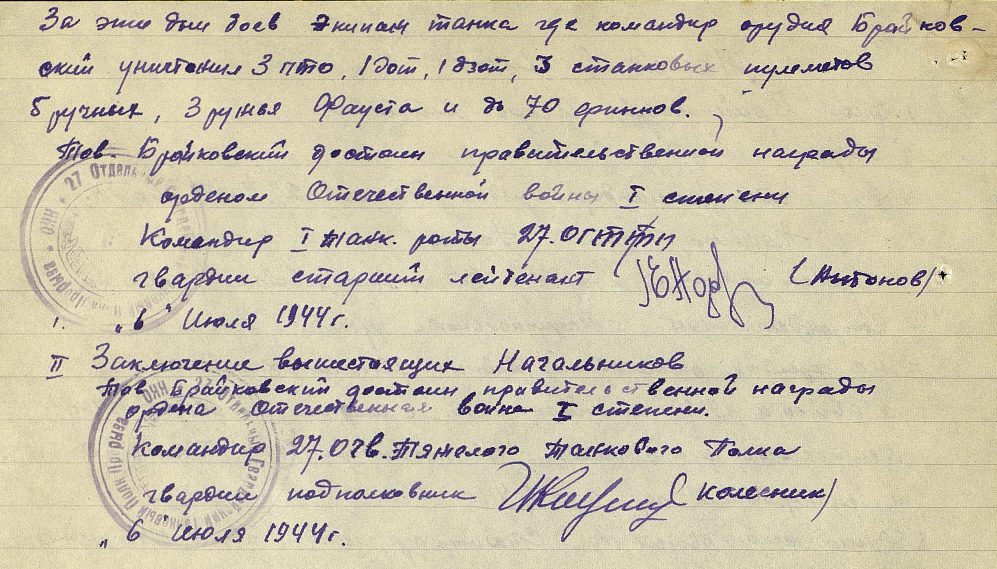 За эти дни боев экипаж танка где командир орудия Брайков-
ский уничтожил 3 пто, 1 дот, 1 дзот, 3 станковых пулеметов
5 ручных, 3 ружья Фауста и до 70 финнов.
Тов. Брайковский достоин правительственной награды
орденом Отечественной войны I степени
Командир I танк. роты 27.ОГТТП
гвардии старший лейтенант (Антонов)
1. „6" Июля 1944 г.
II Заключение вышестоящих Начальников
Тов. Брайковский достоин правительственной награды
ордена Отечественная война I степени.
Командир 27.Огв. Тяжелого Танкового Полка
гвардии подполковник (Колесник)
„6" Июля 1944 г.
27 Отдельный
прорыва
НКО
27 Отдельный Гвардейский Танковый Полк Прорыва